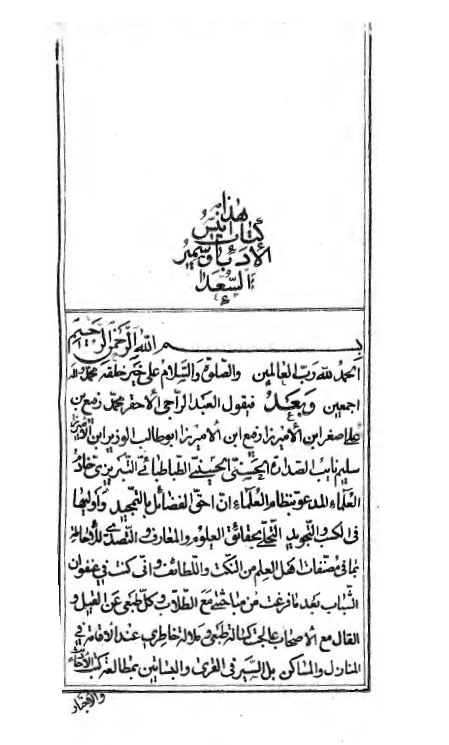 هذا
كتاب أنيس
الأدباء وسمير
السعداء
بسم الله الرحمن الرحيم
الحمد لله رب العالمين والصلوة والسلام على خير خلقه محمد وآله
اجمعين وبعد فيقول العبد الراجى الأحقر محمد رفيع بن
على اصغر ابن الأميرزا رفيع ابن الأميرزا ابوطالب الوزير ابن الأميرزا
سليم نايب الصدارة الحسنى الحسينى الطباطبائى التبريزى خادم
العلماء المدعو بنظام العلماء ان احق الفضائل بالتمجيد واوليها
فى الكسب والتجويد التحلى بحقائق العلوم والمعارف والتصدى للأحاطة
بما فى مصنفات اهل العلم من النكت واللطائف وانى كنت فى عنفوان
الشباب بعد ما فرغت من مباحثتى مع الطلاب وكل طبعى عن القيل و
القال مع الأصحاب عالجت كسالة طبعى وملالة خاطرى عند الاقامة فى
المنازل والمساكن بل السير فى القرى والبساتين بمطالعة كتب الأحاديث
والأخبار